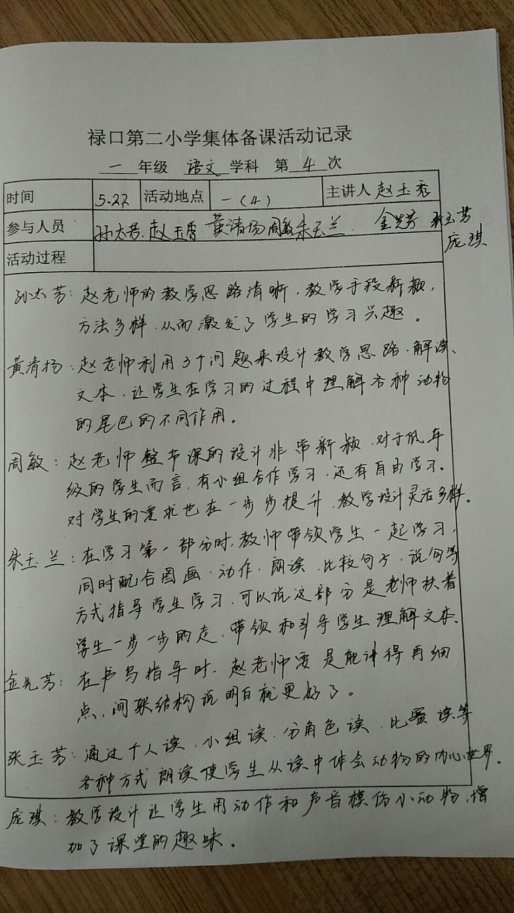 禄口第二小学集体备课活动记录
一 年级 语文 学科 第 4 次
时间 5.22 活动地点 一(4) 主讲人 赵玉秀
参与人员 孙太芳 赵玉秀 黄清扬 周敏 朱玉兰 金先芳 张玉芳
庞琪
活动过程
孙太芳:赵老师的教学思路清晰,教学手段新颖,
方法多样,从而激发了学生的学习兴趣。
黄清扬:赵老师利用3个问题来设计教学思路,解读
文本,让学生在学习的过程中理解各种动物
的尾巴的不同作用。
周敏:赵老师整节课的设计非常新颖,对于低年
级的学生而言,有小组合作学习,还有自由学习。
对学生的要求也在一步步提升,教学设计灵活多样。
朱玉兰:在学习第一部分时,教师带领学生一起学习,
同时配合图画、动作、朗读、比较句子、说句等
方式指导学生学习,可以说这部分是老师扶着
学生一步一步的走,带领和引导学生理解文本。
金先芳:在书写指导时,赵老师要是能讲得再细
点,间架结构说明白就更好了。
张玉芳:通过个人读、小组读、分角色读、比赛读等
各种方式朗读使学生从读中体会动物的内心世界。
庞琪:教学设计让学生用动作和声音模仿小动物,增
加了课堂的趣味。